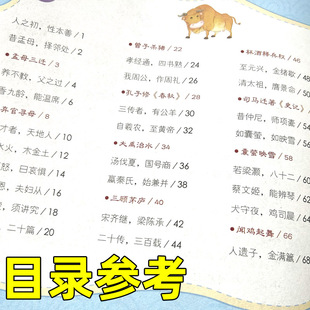 人之初，性本善 / 1
昔孟母，择邻处 / 2
• 孟母三迁 / 3
养不教，父之过 / 4
香九龄，能温席 / 6
弃官寻母 / 8
才者，天地人 / 10
水火，木金土 / 12
怒，曰哀惧 / 14
恩，夫妇从 / 16
须讲究 / 18
二十篇 / 20
• 曾子杀猪 / 22
孝经通，四书熟 / 24
我周公，作周礼 / 26
• 孔子修《春秋》 / 28
三传者，有公羊 / 30
自羲农，至黄帝 / 32
• 大禹治水 / 34
汤伐夏，国号商 / 36
嬴秦氏，始兼并 / 38
• 三顾茅庐 / 40
宋齐继，梁陈承 / 42
二十传，三百载 / 44
• 杯酒释兵权 / 46
至元兴，金绪歇 / 48
清太祖，膺景命
• 司马迁著《史记》
昔仲尼，师项橐 / 54
如囊萤，如映雪 / 56
• 囊萤映雪 / 58
若梁灏，八十二 / 60
蔡文姬，能辨琴 / 62
犬守夜，鸡司晨 / 64
• 闻鸡起舞 / 66
人遗子，金满籯 / 68
目录参考